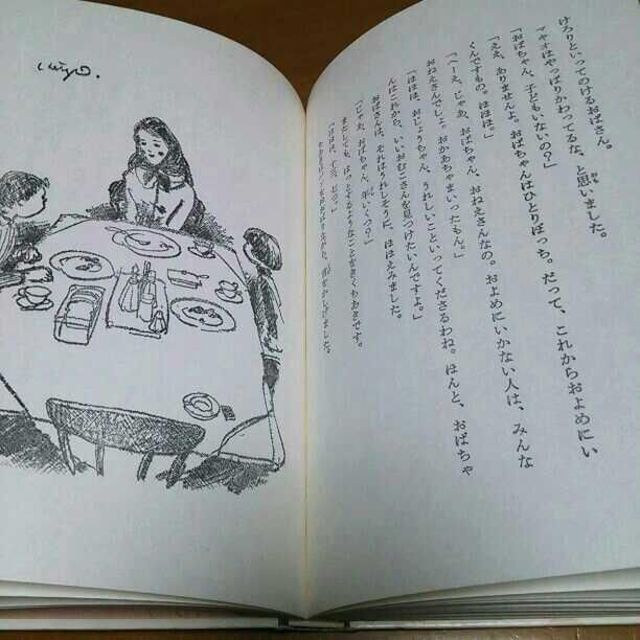 けろりといってのけるおばさん。
マキオはやっぱりかわってるな、と思いました。
「おばちゃん、子どもいないの？」
「ええ、ありませんよ。おばちゃんはひとりぼっち。だって、これからおよめにい
くんですもの。ほほほ」
「へーえ、じゃあ、おばちゃん、おねえさんなの。およめにいかない人は、みんな
おねえさんでしょ。おかあちゃまいったもん。」
「ほほほ、おじょうちゃん、うれしいこといってくださるわね。ほんと、おばちゃ
んはこれから、いいおむこさんを見つけたいんですよ。」
おばさんは、それはうれしそうに、ほほえみました。
「じゃあ、おばちゃん、年いくつ？」
またしても、はっとするようなことをきくちあきです。